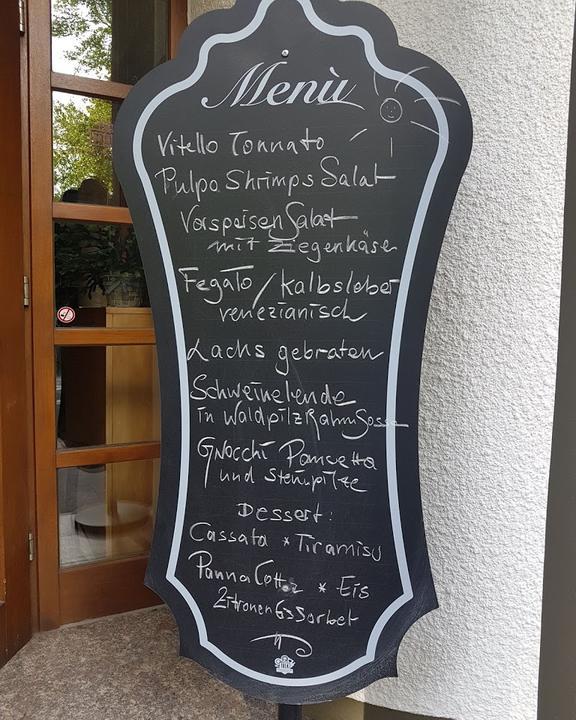 Menù
Vitello Tonnato
Pulpo Shrimps Salat
Vorspeisen Salat
mit Ziegenkäse
Fegato / Kalbsleber
venezianisch
Lachs gebraten
Schweinelende
in WaldpilzRahmSosse
Gnocchi Pancetta
und Steinpilze
Dessert:
Cassata * Tiramisu
Panna Cotta * Eis
Zitronen Sorbet